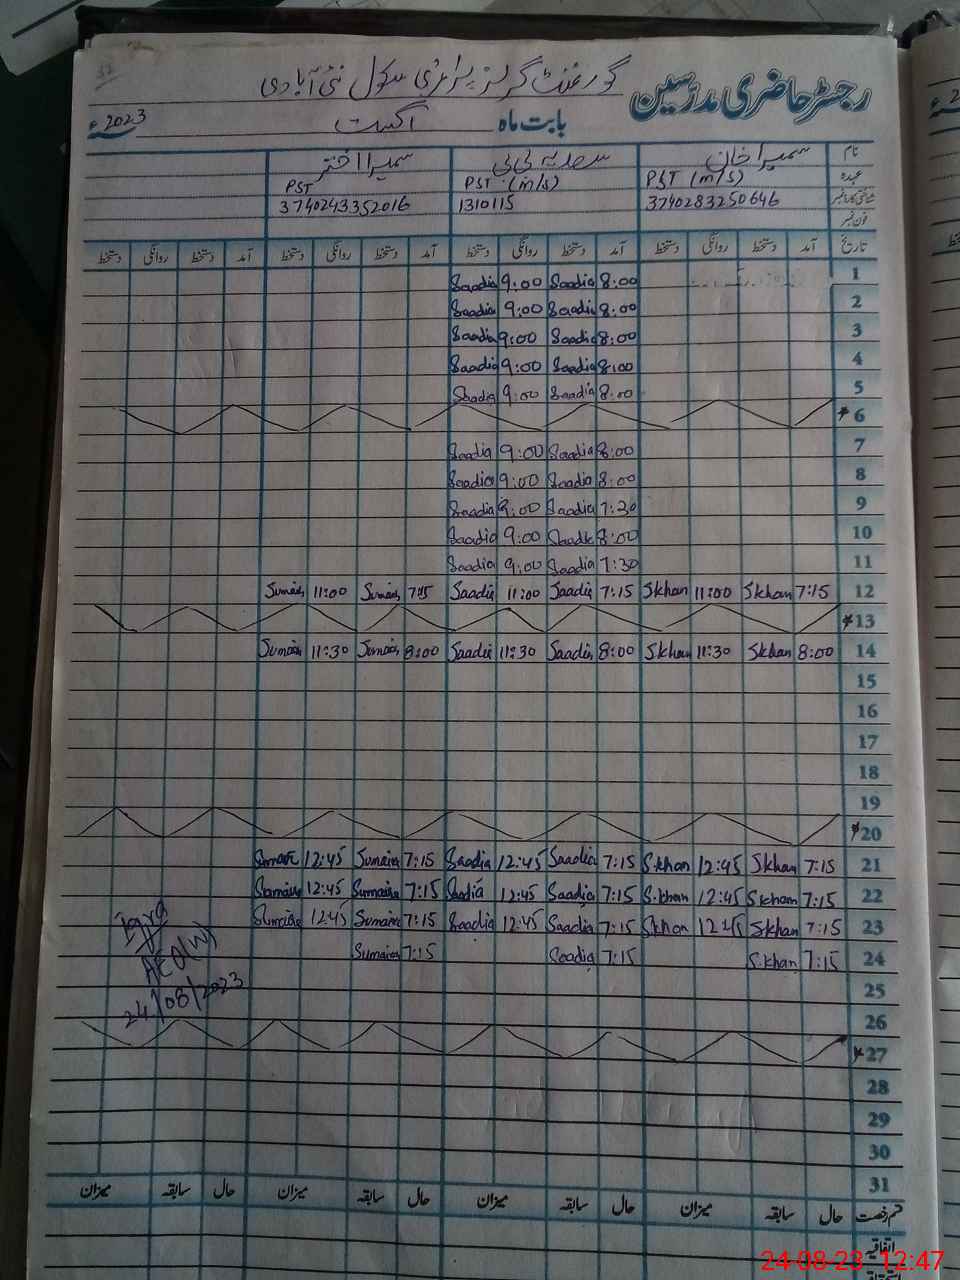 رجسٹر حاضری مدرسین گورنمنٹ گرلز پرائمری سکول نئی آبادی
بابت ماہ اگست 2023ء
نام سمیرا خان سعدیہ بی بی سمیرا اختر
عہدہ PST (m/s) PST (m/s) PST
شناختی کارڈ نمبر 3740283250646 1310115 3740243352016
فون نمبر
تاریخ آمد دستخط روانگی دستخط آمد دستخط روانگی دستخط آمد دستخط روانگی دستخط آمد دستخط روانگی دستخط
Saadia 9:00 Saadia 8:00 1
Saadia 9:00 Saadia 8:00 2
Saadia 9:00 Saadia 8:00 3
Saadia 9:00 Saadia 8:00 4
Saadia 9:00 Saadia 8:00 5
* 6
Saadia 9:00 Saadia 8:00 7
Saadia 9:00 Saadia 8:00 8
Saadia 9:00 Saadia 7:30 9
Saadia 9:00 Saadia 8:00 10
Saadia 9:00 Saadia 7:30 11
Sumaira 11:00 Sumaira 7:15 Saadia 11:00 Saadia 7:15 Skhan 11:00 Skhan 7:15 12
* 13
Sumaira 11:30 Sumaira 8:00 Saadia 11:30 Saadia 8:00 Skhan 11:30 Skhan 8:00 14
15
16
17
18
19
* 20
Sumaira 12:45 Sumaira 7:15 Saadia 12:45 Saadia 7:15 S.khan 12:45 Skhan 7:15 21
Sumaira 12:45 Sumaira 7:15 Saadia 12:45 Saadia 7:15 S.khan 12:45 S.khan 7:15 22
Sumaira 12:45 Sumaira 7:15 Saadia 12:45 Saadia 7:15 Skhan 12:45 Skhan 7:15 23
Sumaira 7:15 Saadia 7:15 S.khan 7:15 24
AEO(W)
24/08/2023
25
26
* 27
28
29
30
31
قسم رخصت حال سابقہ میزان حال سابقہ میزان حال سابقہ میزان حال سابقہ میزان
اتفاقیہ
24-08-23 12:47